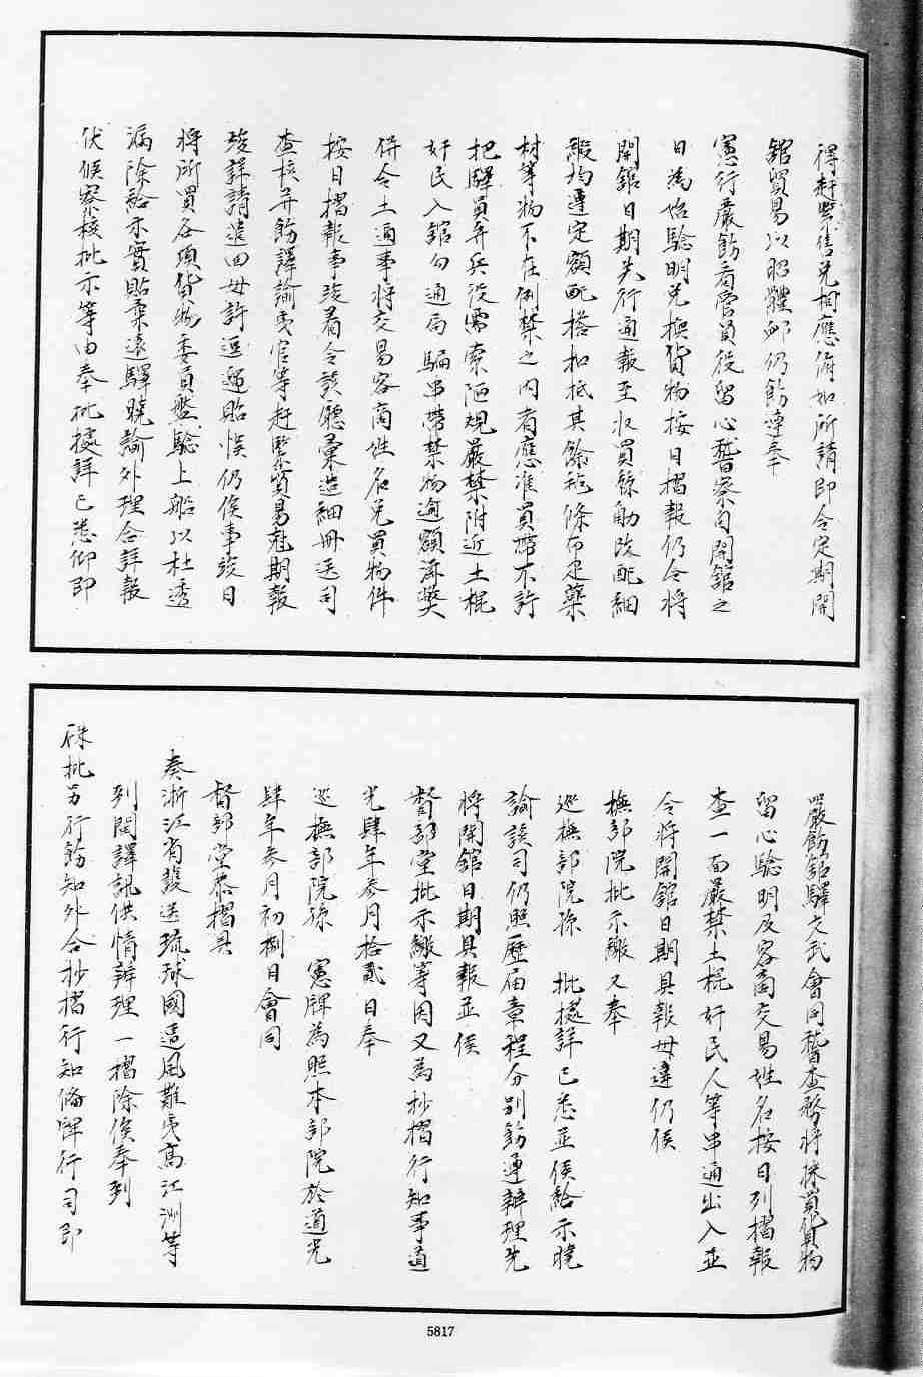 得赶緊售兌相應俯如所請即令定期開
舘貿易以昭體卹仍飭遵奉
憲行嚴飭看管員役留心稽察自開舘之
日為始驗明兌換貨物按日摺報仍令將
開舘日期先行通報至收買絲觔改配紬
緞均遵定額配搭扣抵其餘 條布疋藥
材等物不在例禁之內者應准買帶不許
把驛員弁兵役需索陋規嚴禁附近土棍
奸民入舘勾通局騙串帶禁物逾額滋獘
併令土通事將交易客商姓名兌買物件
按日摺報事竣着令該廳彙造細冊送司
查核并飭譯諭夷官等赶緊貿易尅期報
竣詳請遣回毋許逗遛貽悞仍俟事竣日
將所買各項貨物委員盤驗上船以杜透
漏除給示實貼柔遠驛曉諭外理合詳報
伏候察核批示等由奉批據詳已悉仰即
嚴飭舘驛文武會同稽查務將採買貨物
留心驗明及客商交易姓名按日列摺報
查一面嚴禁土棍奸民人等串通出入並
令將開舘日期具報毋違仍候
撫部院批示繳又奉
巡撫部院孫 批據詳已悉並候給示曉
諭該司仍照歷届章程分别飭遵辦理先
將開舘日期具報並候
督部堂批示繳等因又為抄摺行知事道
光肆年叁月拾貳日奉
巡撫部院孫 憲牌為照本部院於道光
肆年叁月初捌日會同
督部堂恭摺具
奏浙江省護送琉球國遭風難夷高江洲等
到閩譯訊供情辦理一摺除俟奉到
硃批另行飭知外合抄摺行知備牌行司即
5817